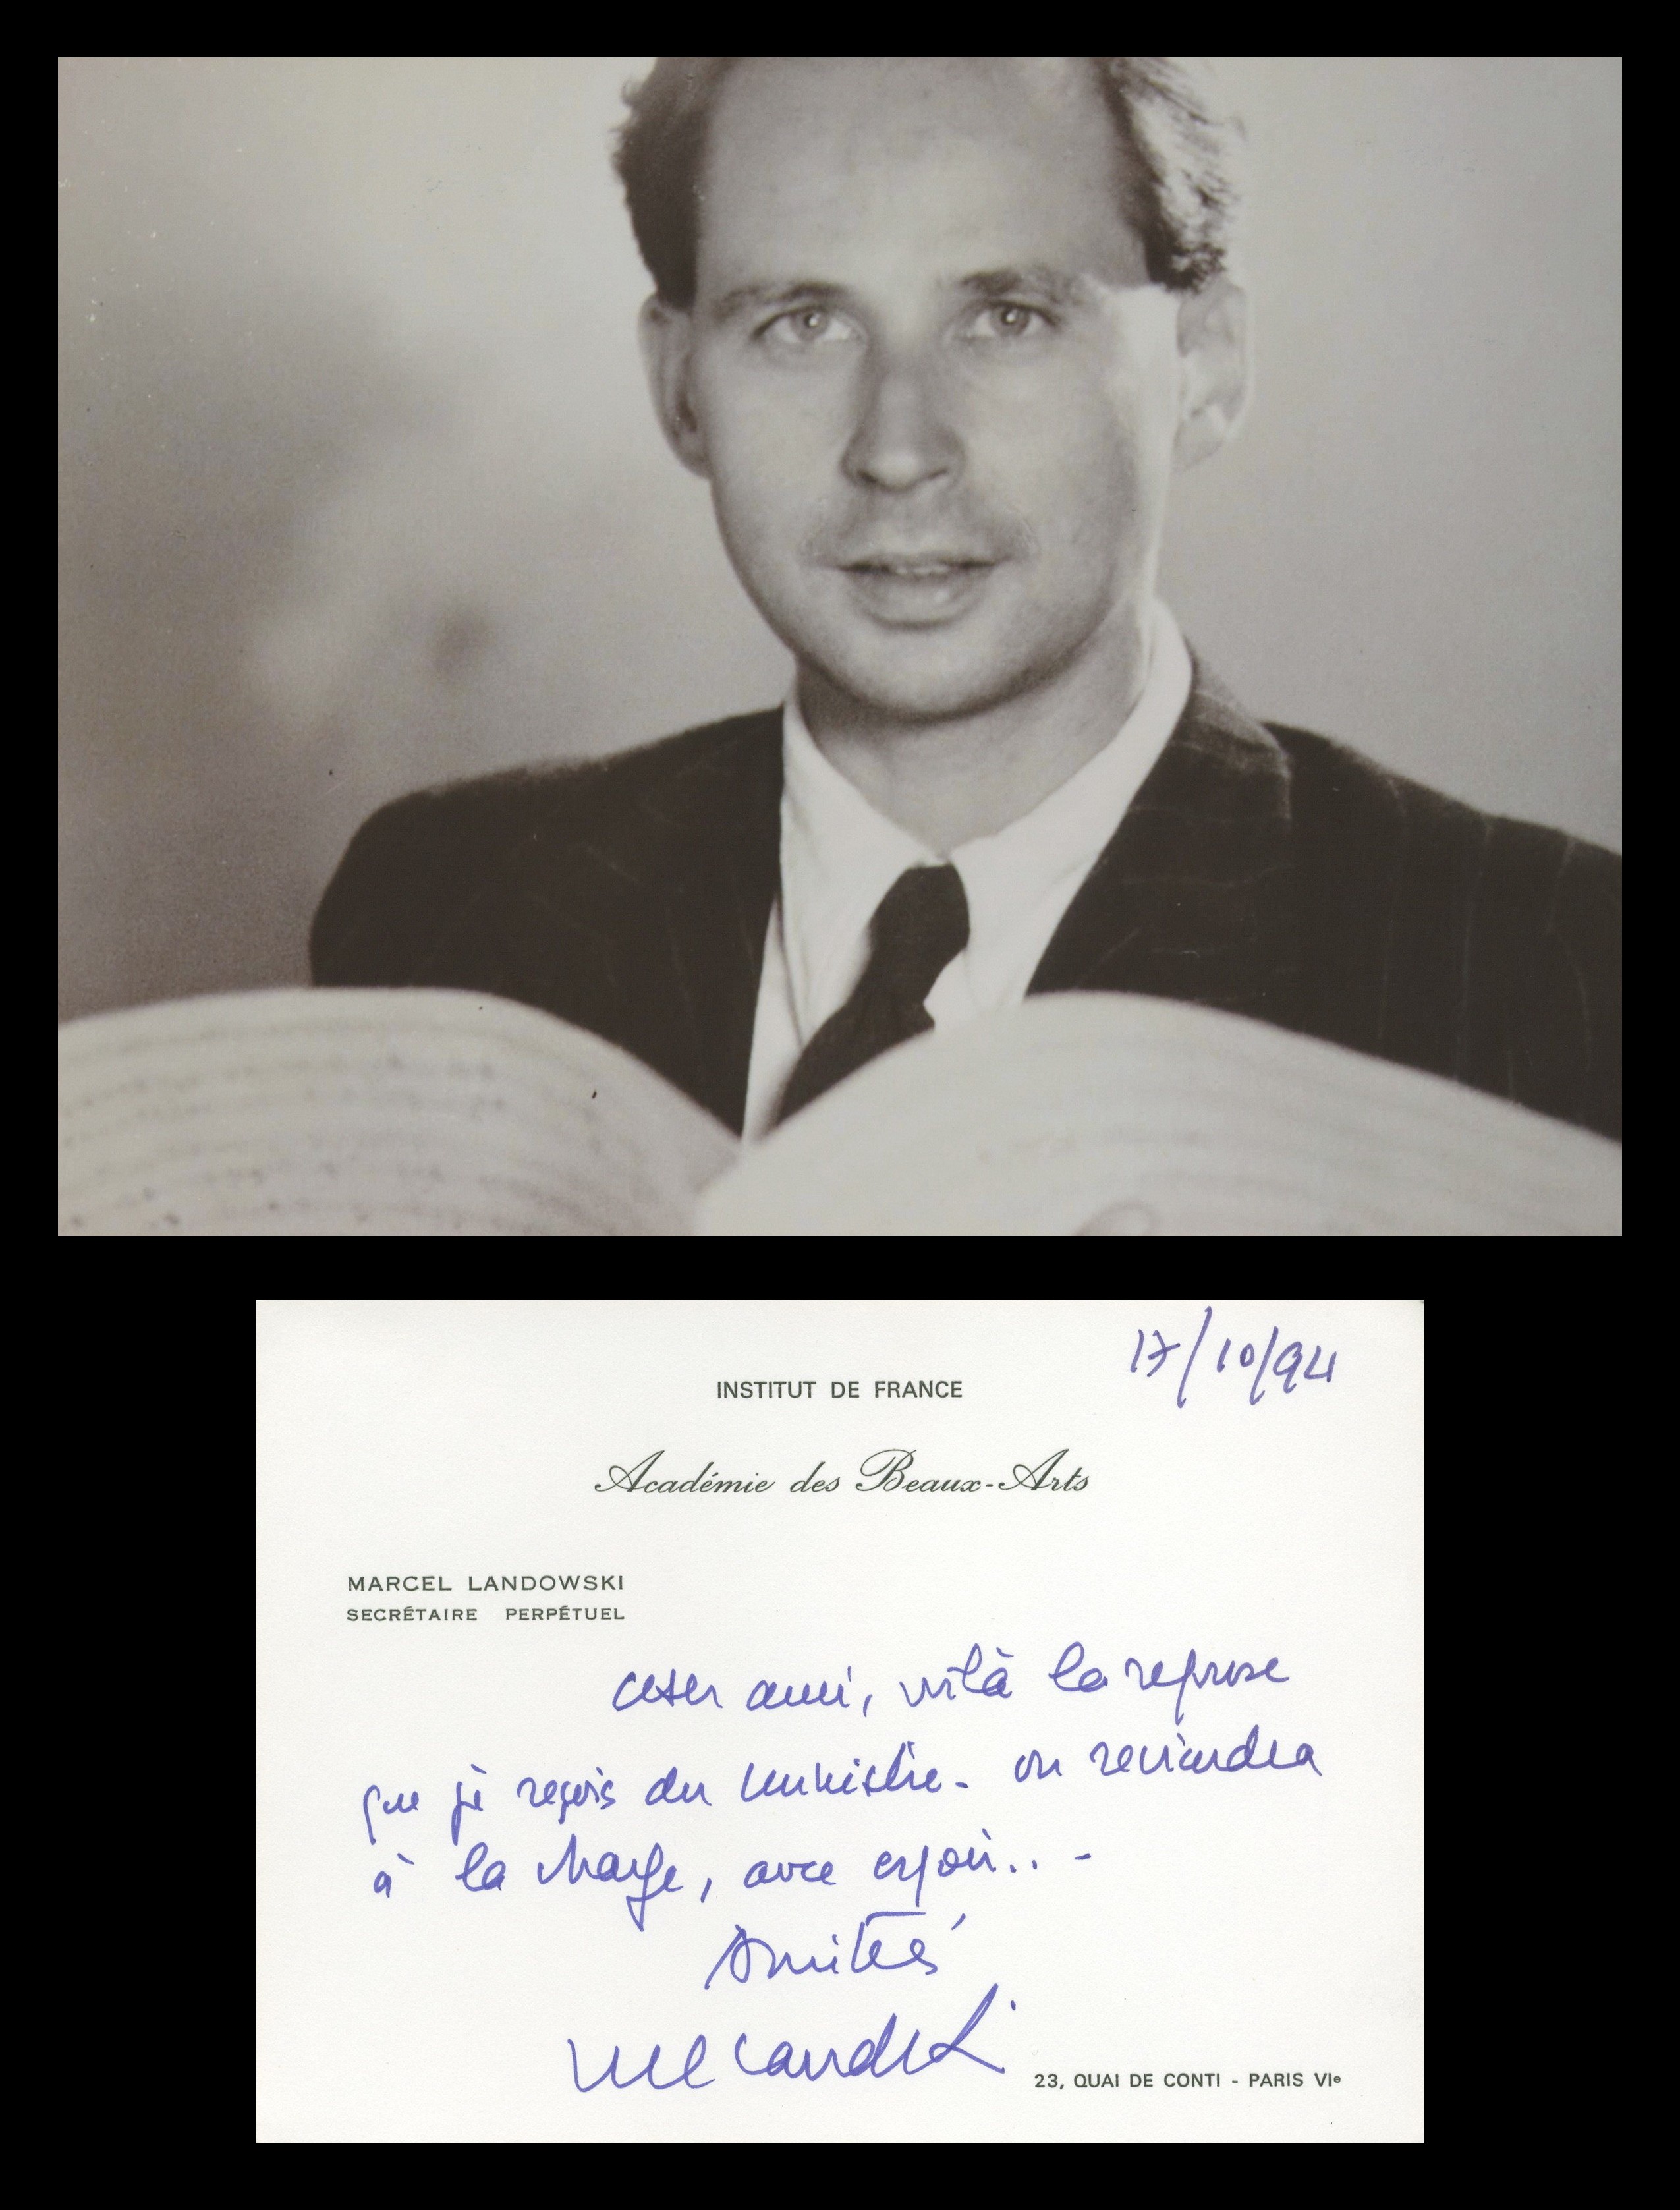 17/10/94
INSTITUT DE FRANCE
Académie des Beaux-Arts
MARCEL LANDOWSKI
SECRÉTAIRE PERPÉTUEL
Cher ami, voilà la réponse
que je reçois du ministre. on reviendra
à la charge, avec espoir...
Amitiés
Landowski
23, QUAI DE CONTI - PARIS VIe